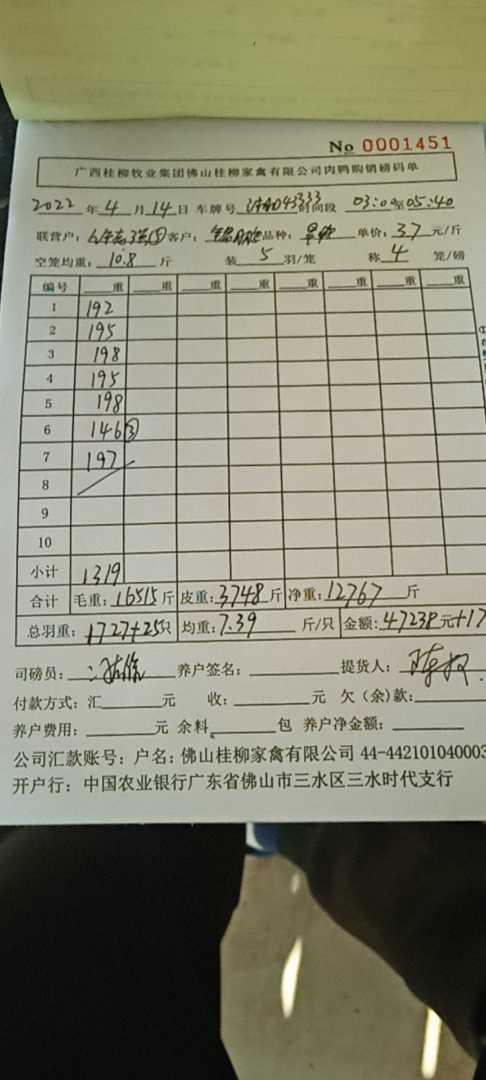 No 0001451
广西桂柳牧业集团佛山桂柳家禽有限公司肉鸭购销磅码单
2022 年 4 月 14 日 车牌号 43333 时间段 03:00 至 05:40
联营户: 客户: 品种: 单价: 3.7 元/斤
空笼均重: 10.8 斤 装 5 羽/笼 称 4 笼/磅
编号 重 重 重 重 重 重 重 重
1 192
2 195
3 198
4 195
5 198
6 146 ③
7 197
8
9
10
小计 1319
合计 毛重: 16515 斤 皮重: 3748 斤 净重: 12767 斤
总羽重: 1727+25 只 均重: 7.39 斤/只 金额: 47238 元+17
司磅员: 养户签名: 提货人:
付款方式: 汇 元 收: 元 欠(余)款:
养户费用: 元 余料 包 养户净金额:
公司汇款账号: 户名: 佛山桂柳家禽有限公司 44-442101040003
开户行: 中国农业银行广东省佛山市三水区三水时代支行